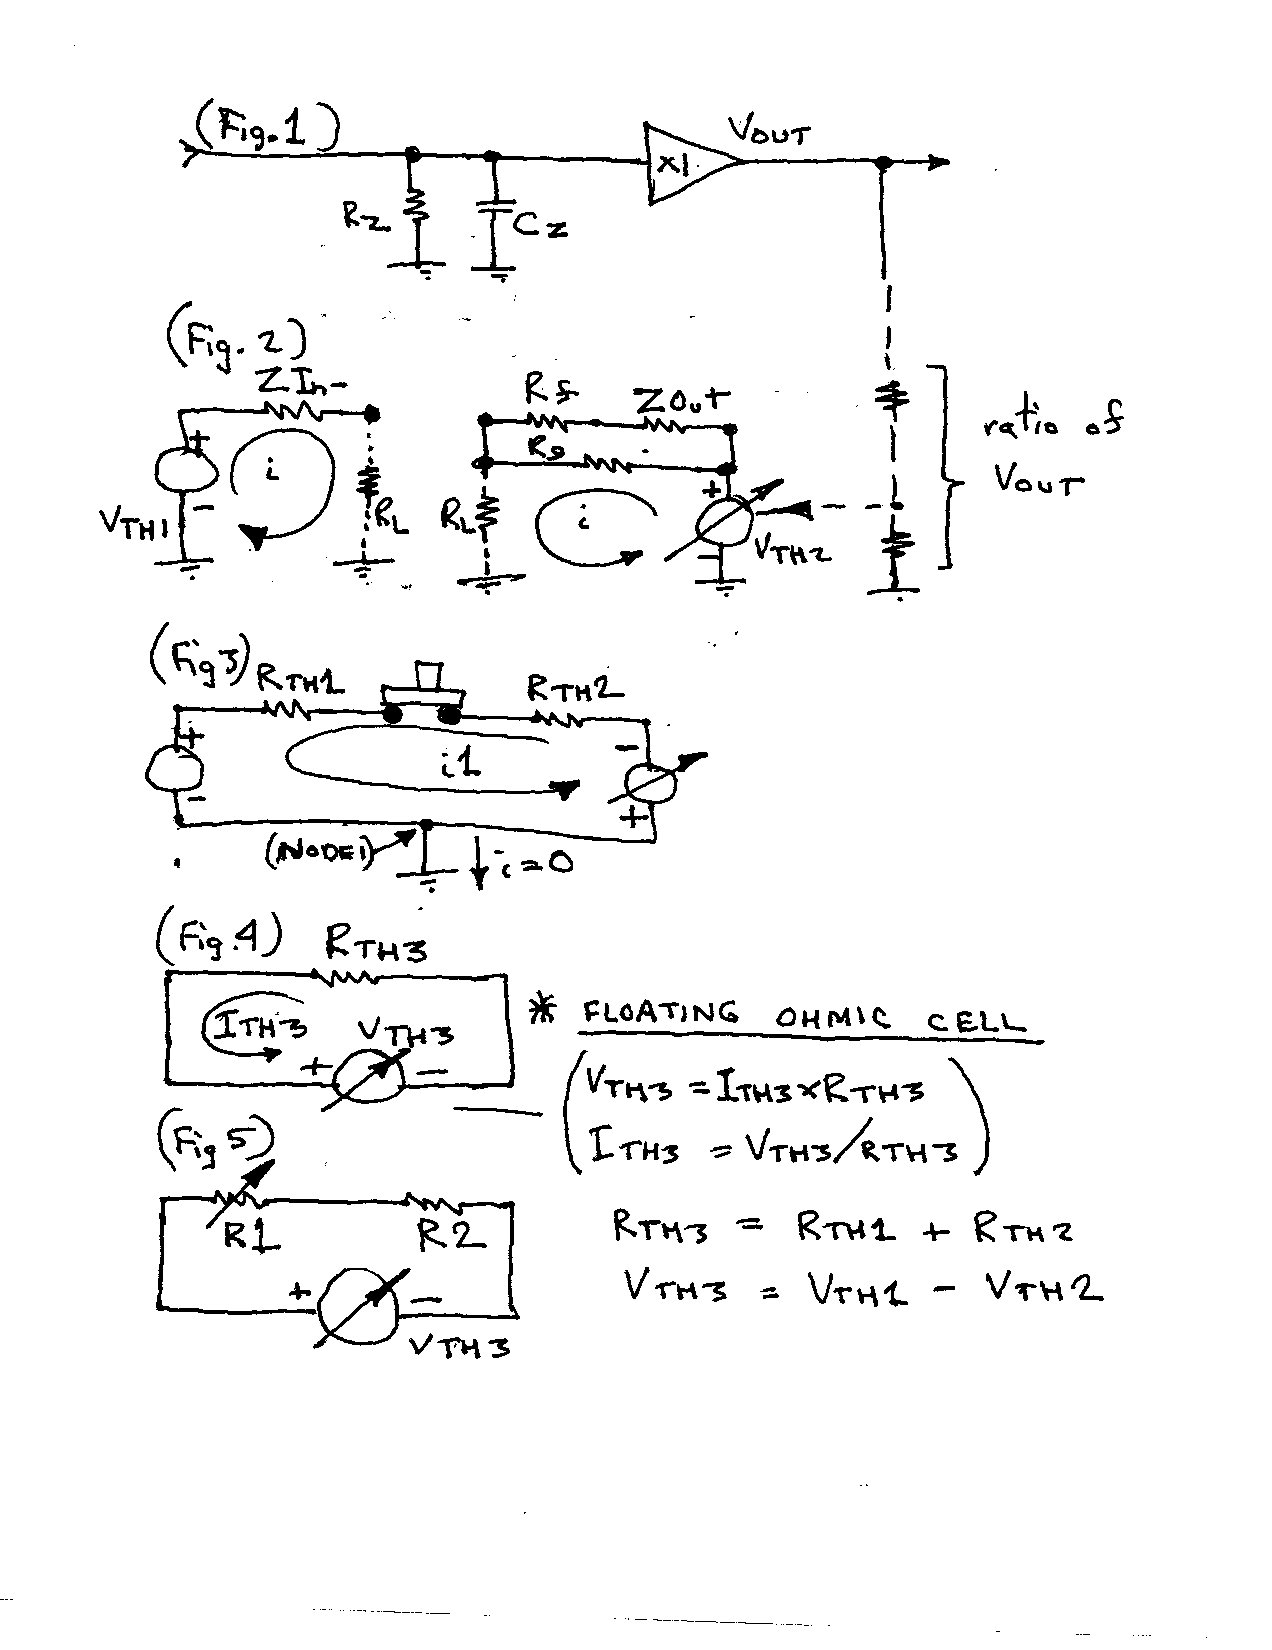 (Fig. 1)
VOUT
x1
Rz
Cz
(Fig. 2)
ZIn
Rf
ZOut
ratio of
VOUT
+
i
-
VTH1
RL
Rg
RL
i
+
-
VTH2
(Fig 3)
RTH1
RTH2
+
-
i1
-
+
(NODE1)
i=0
(Fig. 4)
RTH3
ITH3
VTH3
+ -
* FLOATING OHMIC CELL
(VTH3 = ITH3 x RTH3
ITH3 = VTH3/RTH3)
(Fig 5)
R1
R2
+ -
VTH3
RTH3 = RTH1 + RTH2
VTH3 = VTH1 - VTH2